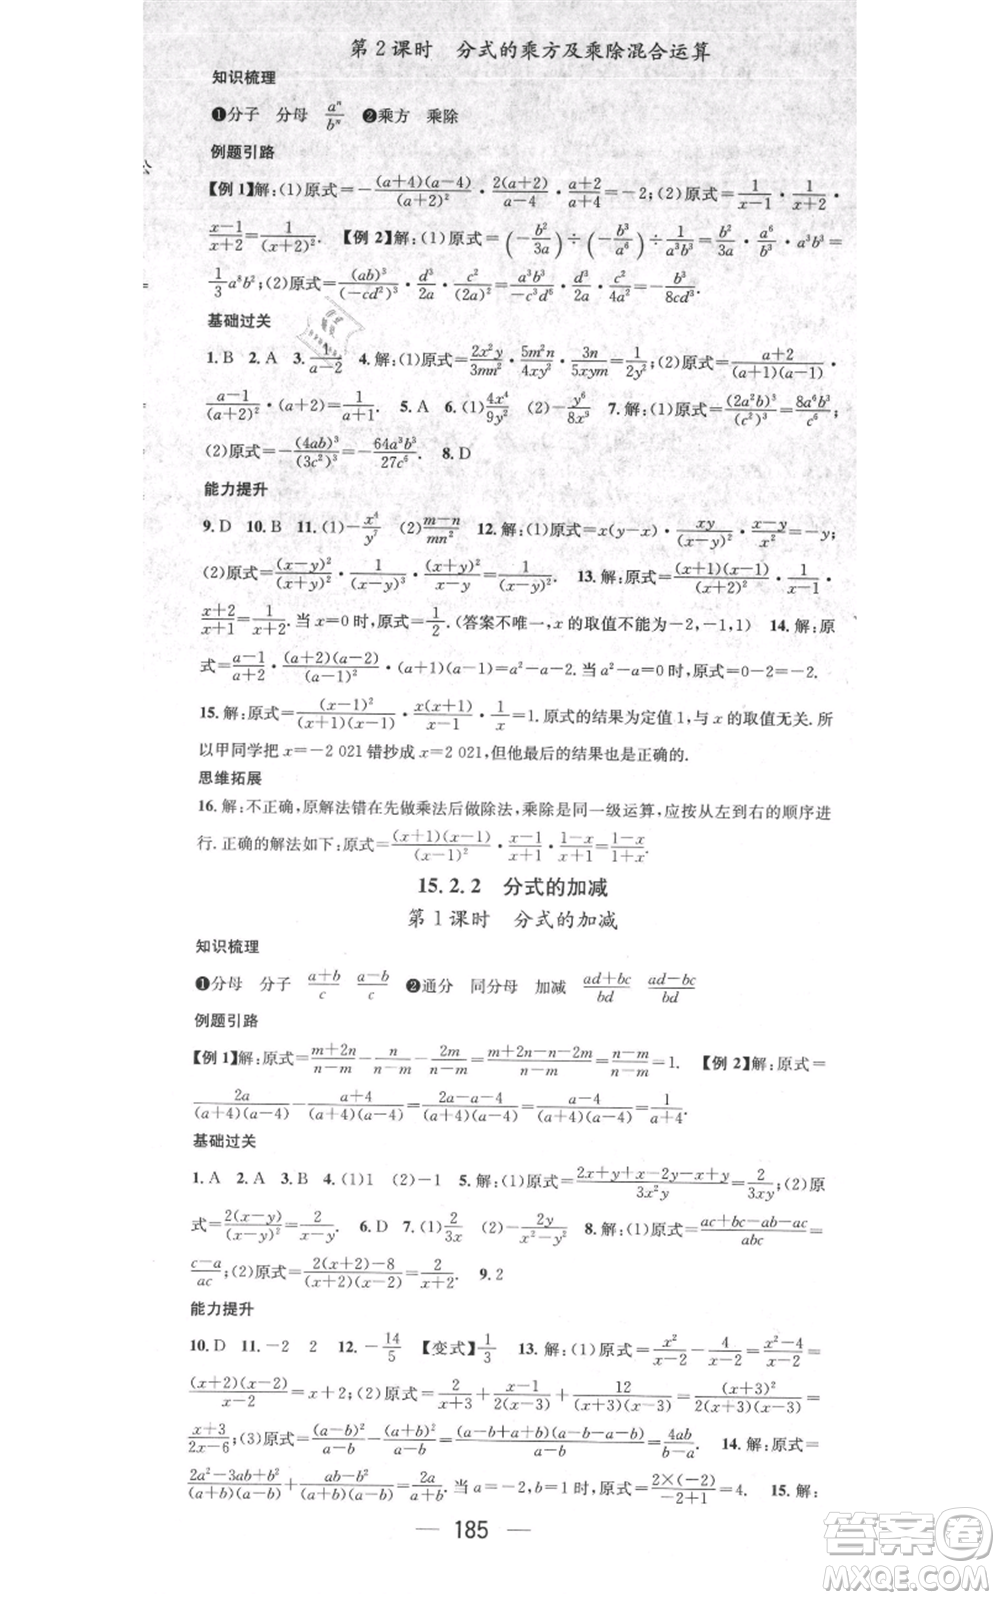 第2课时　分式的乘方及乘除混合运算
知识梳理
❶分子　分母　a^n/b^n　❷乘方　乘除
例题引路
【例1】解:(1)原式=-(a+4)(a-4)/(a+2)²·2(a+2)/(a-4)·(a+2)/(a+4)=-2;(2)原式=1/(x-1)·1/(x+2)·
(x-1)/(x+2)=1/(x+2)².　【例2】解:(1)原式=(-b²/3a)÷(-b²/a⁶)÷1/(a³b³)=b²/3a·a⁶/b²·a³b³=
1/3 a⁸b²;(2)原式=(ab)³/(-cd²)³·d³/2a·c²/(2a)²=a³b³/(-c³d⁶)·d³/2a·c²/4a²=-b³/8cd³.
基础过关
1. B　2. A　3. 1/(a-2)　4. 解:(1)原式=2x²y/3mn²·5m²n/4xy²·3n/5xym=1/2y²;(2)原式=(a+2)/(a+1)(a-1)·
(a-1)/(a+2)²·(a+2)=1/(a+1).　5. A　6. (1)4x⁴/9y²　(2)-y⁶/8x³　7. 解:(1)原式=(2a²b)³/(c²)³=8a⁶b³/c⁶;
(2)原式=-(4ab)³/(3c²)³=-64a³b³/27c⁶.　8. D
能力提升
9. D　10. B　11. (1)-x⁴/y⁷　(2)(m-n)/mn²　12. 解:(1)原式=x(y-x)·xy/(x-y)²·(x-y)/x²=-y;
(2)原式=(x-y)²/(x+y)²·1/(x-y)³·(x+y)²/(x-y)=1/(x-y)².　13. 解:原式=(x+1)(x-1)/(x+2)²·1/(x-1)·
(x+2)/(x+1)=1/(x+2). 当 x=0时,原式=1/2. (答案不唯一,x的取值不能为-2,-1,1)　14. 解:原
式=(a-1)/(a+2)·(a+2)(a-2)/(a-1)²·(a+1)(a-1)=a²-a-2. 当 a=0时,原式=0-2=-2.
15. 解:原式=(x-1)²/(x+1)(x-1)·x(x+1)/(x-1)·1/x=1. 原式的结果为定值1,与x的取值无关. 所
以甲同学把 x=-2 021错抄成x=2 021,但他最后的结果也是正确的.
思维拓展
16. 解:不正确,原解法错在先做乘法后做除法,乘除是同一级运算,应按从左到右的顺序进
行. 正确的解法如下:原式=(x+1)(x-1)/(x-1)²·(x-1)/(x+1)·(1-x)/(x+1)=(1-x)/(1+x).
15.2.2　分式的加减
第1课时　分式的加减
知识梳理
❶分母　分子　(a+b)/c　(a-b)/c　❷通分　同分母　加减　(ad+bc)/bd　(ad-bc)/bd
例题引路
【例1】解:原式=(m+2n)/(n-m)-n/(n-m)-2m/(n-m)=(m+2n-n-2m)/(n-m)=(n-m)/(n-m)=1.　【例2】解:原式=
2a/(a+4)(a-4)-(a+4)/(a+4)(a-4)=(2a-a-4)/(a+4)(a-4)=(a-4)/(a+4)(a-4)=1/(a+4).
基础过关
1. A　2. A　3. B　4. (1)1　(2)-1　5. 解:(1)原式=(2x+y+x-2x-y... )/3x²y=2/3xy;(2)原
式=2(x-y)/(x-y)²=2/(x-y).　6. D　7. (1)2/3x　(2)-2y/(x²-y²)　8. 解:(1)原式=(ac+bc-ab-ac)/abc=
(c-a)/ac;(2)原式=(2(x+2)-8)/(x+2)(x-2)=2/(x+2).　9. 2
能力提升
10. D　11. -2　2　12. -14/5　【变式】1/3　13. 解:(1)原式=x²/(x-2)-4/(x-2)=(x²-4)/(x-2)=
(x+2)(x-2)/(x-2)=x+2;(2)原式=2/(x+3)+1/(x-3)... 12/2(x+3)(x-3)=(x+3)²/2(x+3)(x-3)=
(x+3)/(2x-6);(3)原式=(a-b)²/(a-b)-(a+b)²/(a-b)=(a-b+a+b)(a-b-a-b)/(a-b)=4ab/(b-a).　14. 解:原式=
(2a²-3ab+b²)/(a+b)(a-b)+... 当 a=-2,b=1时,原式=2×(-2)/(-2+1)=4.　15. 解:
— 185 —
答案圈
MXQE.COM